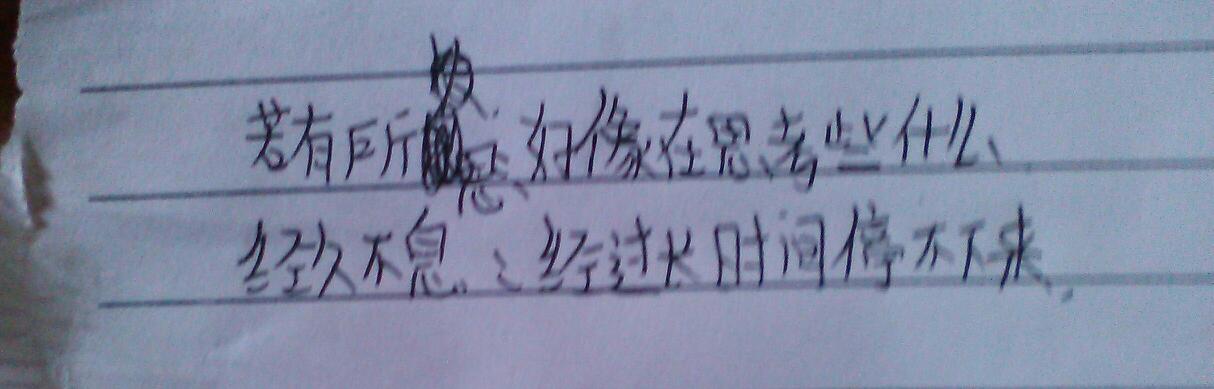 若有所思:好像在思考些什么、
经久不息:经过长时间停不下来.